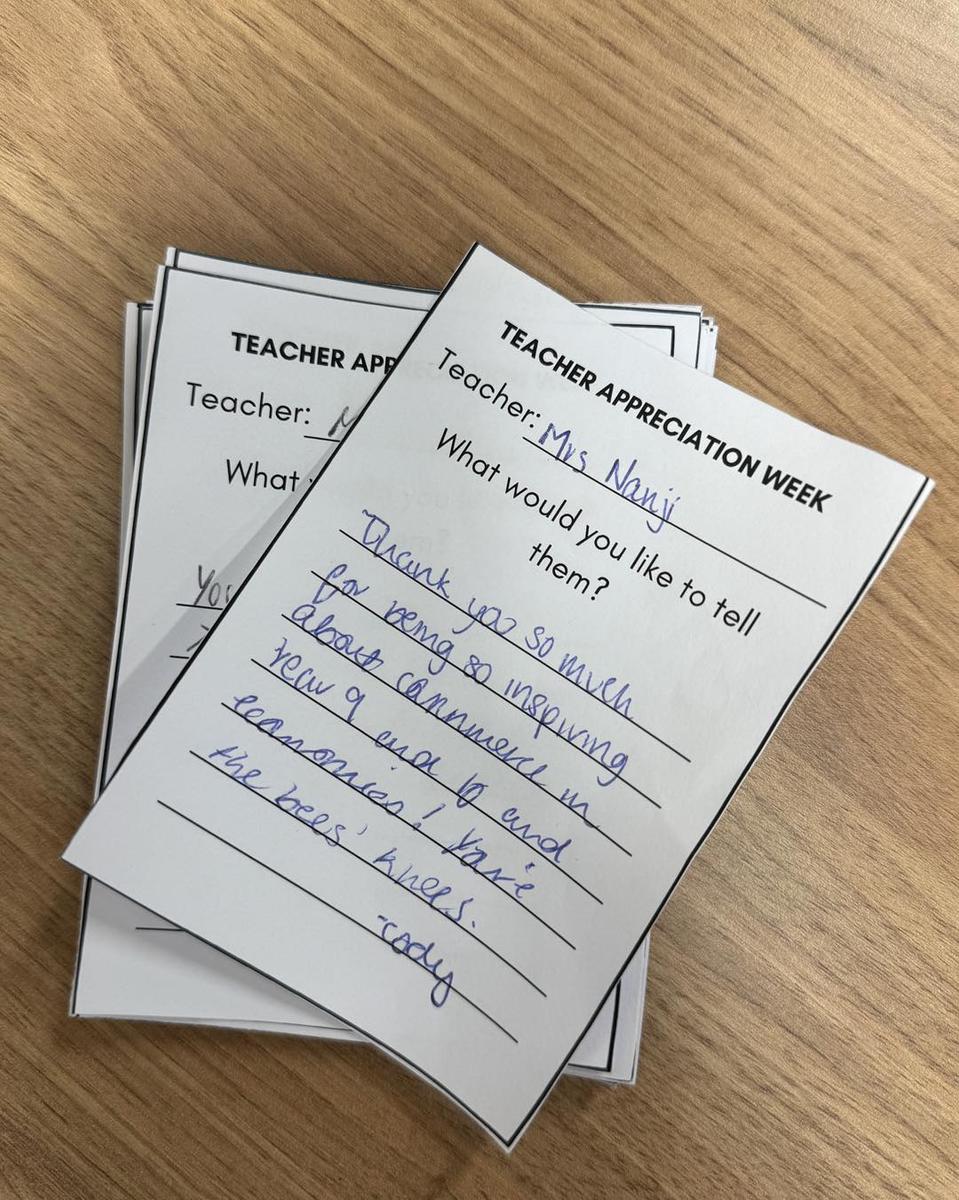 TEACHER APPRECIATION WEEK
Teacher: Mrs Nanji
What would you like to tell
them?
Thank you so much
for being so inspiring
about commerce in
year 9 and 10 and
economics! You're
the bees' knees.
-cody
TEACHER APP
Teacher: M
What
You